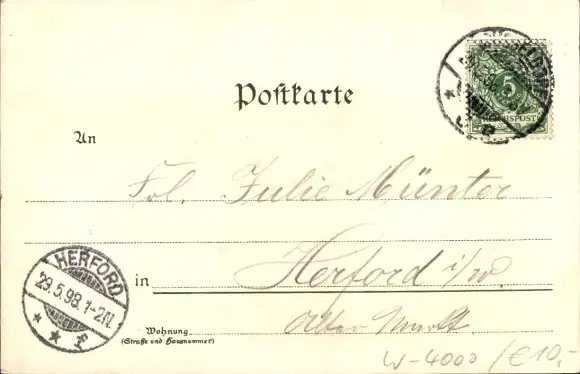 Postkarte
5
REICHSPOST
An
Frl. Julie Münter
in Herford i/w.
Alter Markt.
Wohnung
(Straße und Hausnummer)
HERFORD
29.5.98. 1-2N.
* * f
W-4000 / € 10,-